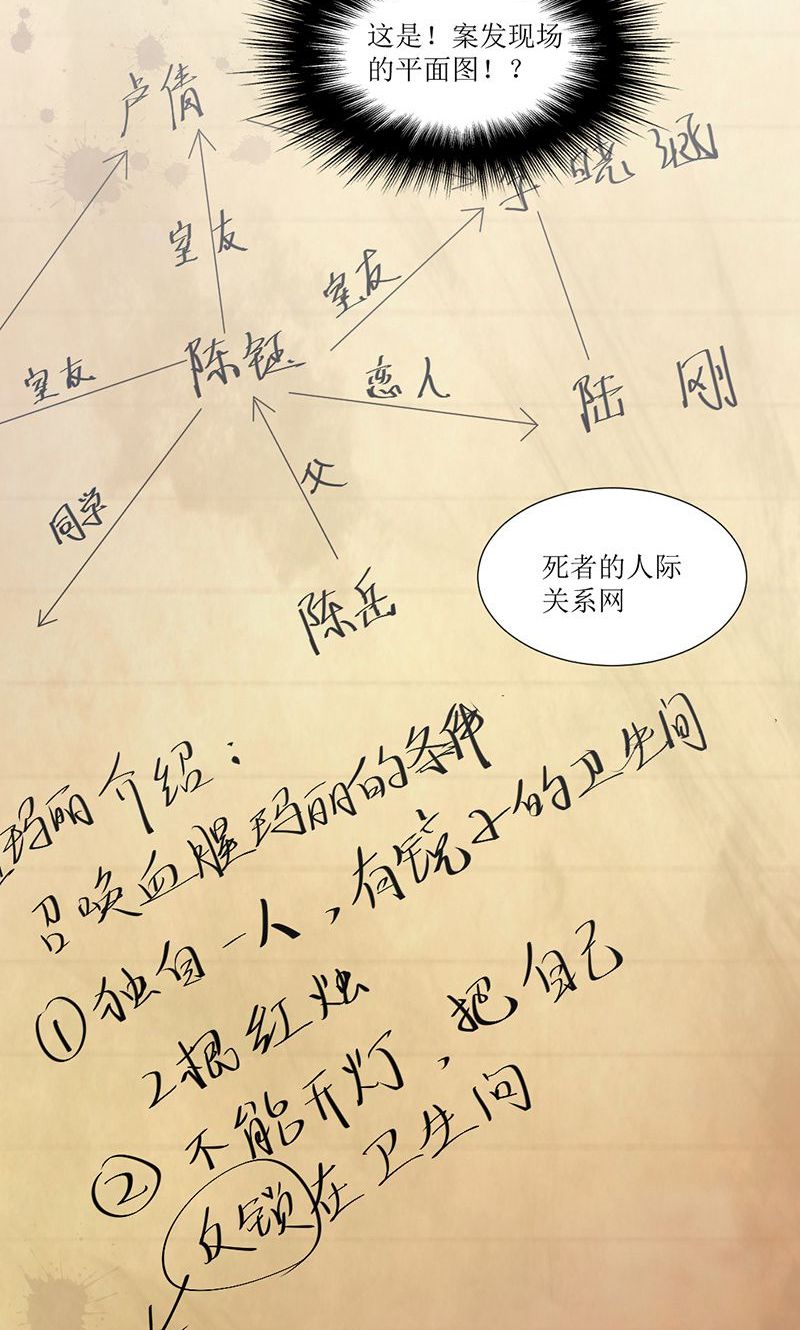 这是！案发现场
的平面图！？
卢倩
晓涵
室友
室友
陈钰
室友
恋人
陆 刚
同学
父
陈岳
死者的人际
关系网
玛丽介绍：
召唤血腥玛丽的条件
①独自一人，有镜子的卫生间
2根红烛
②不能开灯，把自己
反锁在卫生间